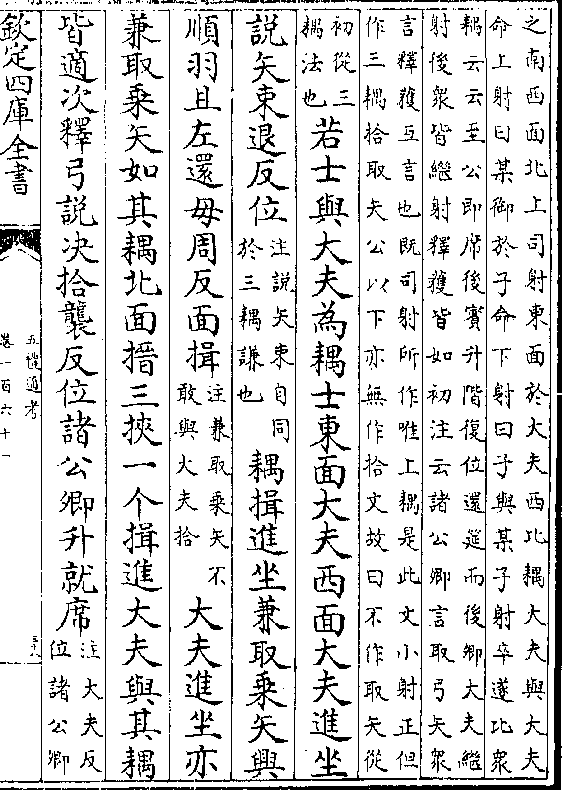 之南西面北上司射東面於大夫西比耦大夫與大夫
命上射曰某御於子命下射曰子與某子射卒遂比衆
耦云云至公即席後賓升階復位還筵而後卿大夫繼
射後衆皆繼射釋獲皆如初注云諸公卿言取弓矢衆
言釋獲互言也既司射所作唯上耦是此文小射正但
作三耦拾取矢公以下亦無作拾文故曰不作取矢從
初從三
耦法也
若士與大夫為耦士東面大夫西面大夫進坐
說矢束退反位
注說矢束自同
於三耦謙也
耦揖進坐兼取乘矢興
順羽且左還毋周反面揖
注兼取乘矢不
敢與大夫拾
大夫進坐亦
兼取乘矢如其耦北面搢三挾一个揖進大夫與其耦
皆適次釋弓說决拾襲反位諸公卿升就席
注大夫反
位諸公卿
欽定四庫全書
五禮通考
卷一百六十一